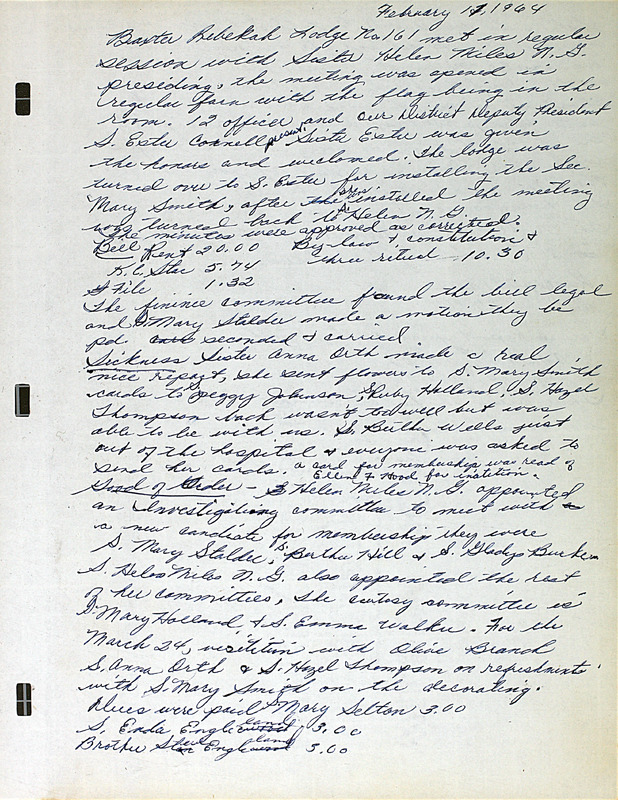 February 17, 1964
Baxter Rebekah Lodge No. 161 met in regular
session with Sister Helen Niles N. G.
presiding, the meeting was opened in
regular form with the flag being in the
room. 12 officer and our District Deputy President
S. Ester Connell present. Sister Ester was given
the honors and welcomed. The lodge was
turned over to S. Ester for installing the Sec.
Mary Smith, after she was installed the meeting
was turned back to S. Helen N. G.
The minutes were approved as corrected.
Bill Rent 20.00 By-law & constitution &
three ritual - 10.30
K. C. Star 5.74
File 1.32
The finince committee found the bill legal
and S. Mary Stalder made a motion they be
pd. seconded & carried
Sickness Sister Anna Orth made a real
nice repart, she sent flowers to S. Mary Smith
cards to S. Peggy Johnson, S. Ruby Holland, S. Hazel
Thompson back wasn't to well but was
able to be with us. S. Bertha Wells just
out of the hospital & everyone was asked to
send her cards. a card for membership was read of
Hood for
Good of Order - S Helen Niles N. G. appointed
an Investigating committee to meet with
a new candiate for membership they were
S. Mary Stalder, S. Bertha Hill & S. Gladys
S. Helen Niles N. G. also appointed the rest
of her committees, she committee is
S. Mary Holland & S. Emma Walker. For the
March 24, visitition with Olive Branch
S. Anna Orth & S. Hazel Thompson on refreshments
with S. Mary Smith on the decorating.
Dues were paid Mary Selton 3.00
S. Enda Engleland 3.00
Brother Engleland 3.00